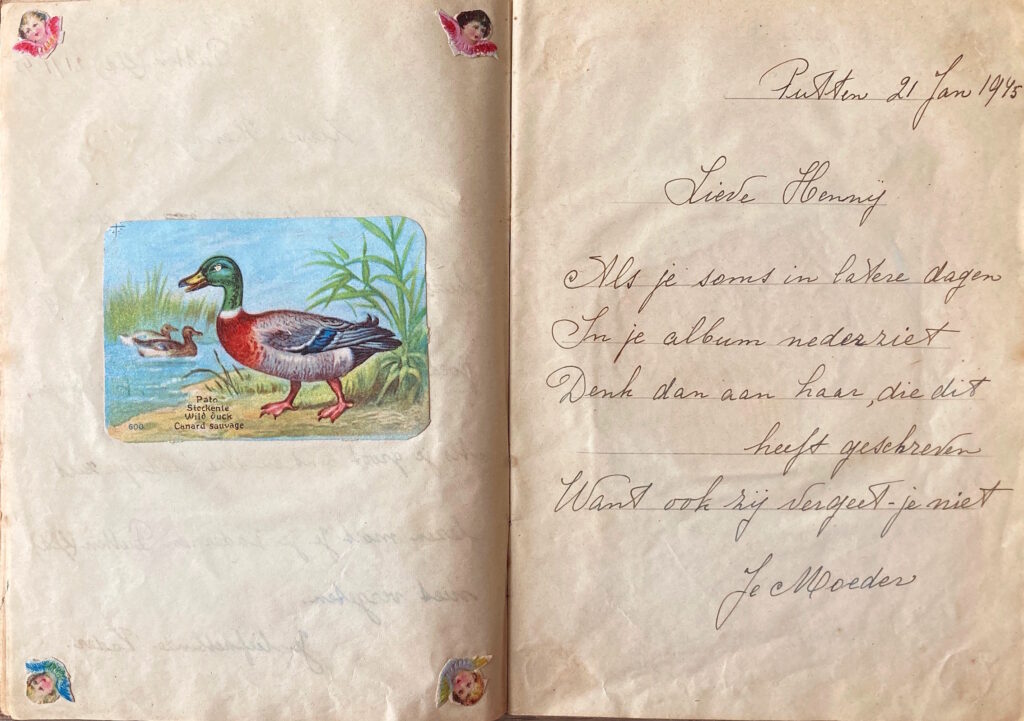 Pato
Stockente
Wild duck
Canard sauvage
600
Putten 21 Jan 1945
Lieve Henny
Als je soms in latere dagen
In je album nederziet
Denk dan aan haar, die dit
heeft geschreven
Want ook zij vergeet-je niet
Je Moeder